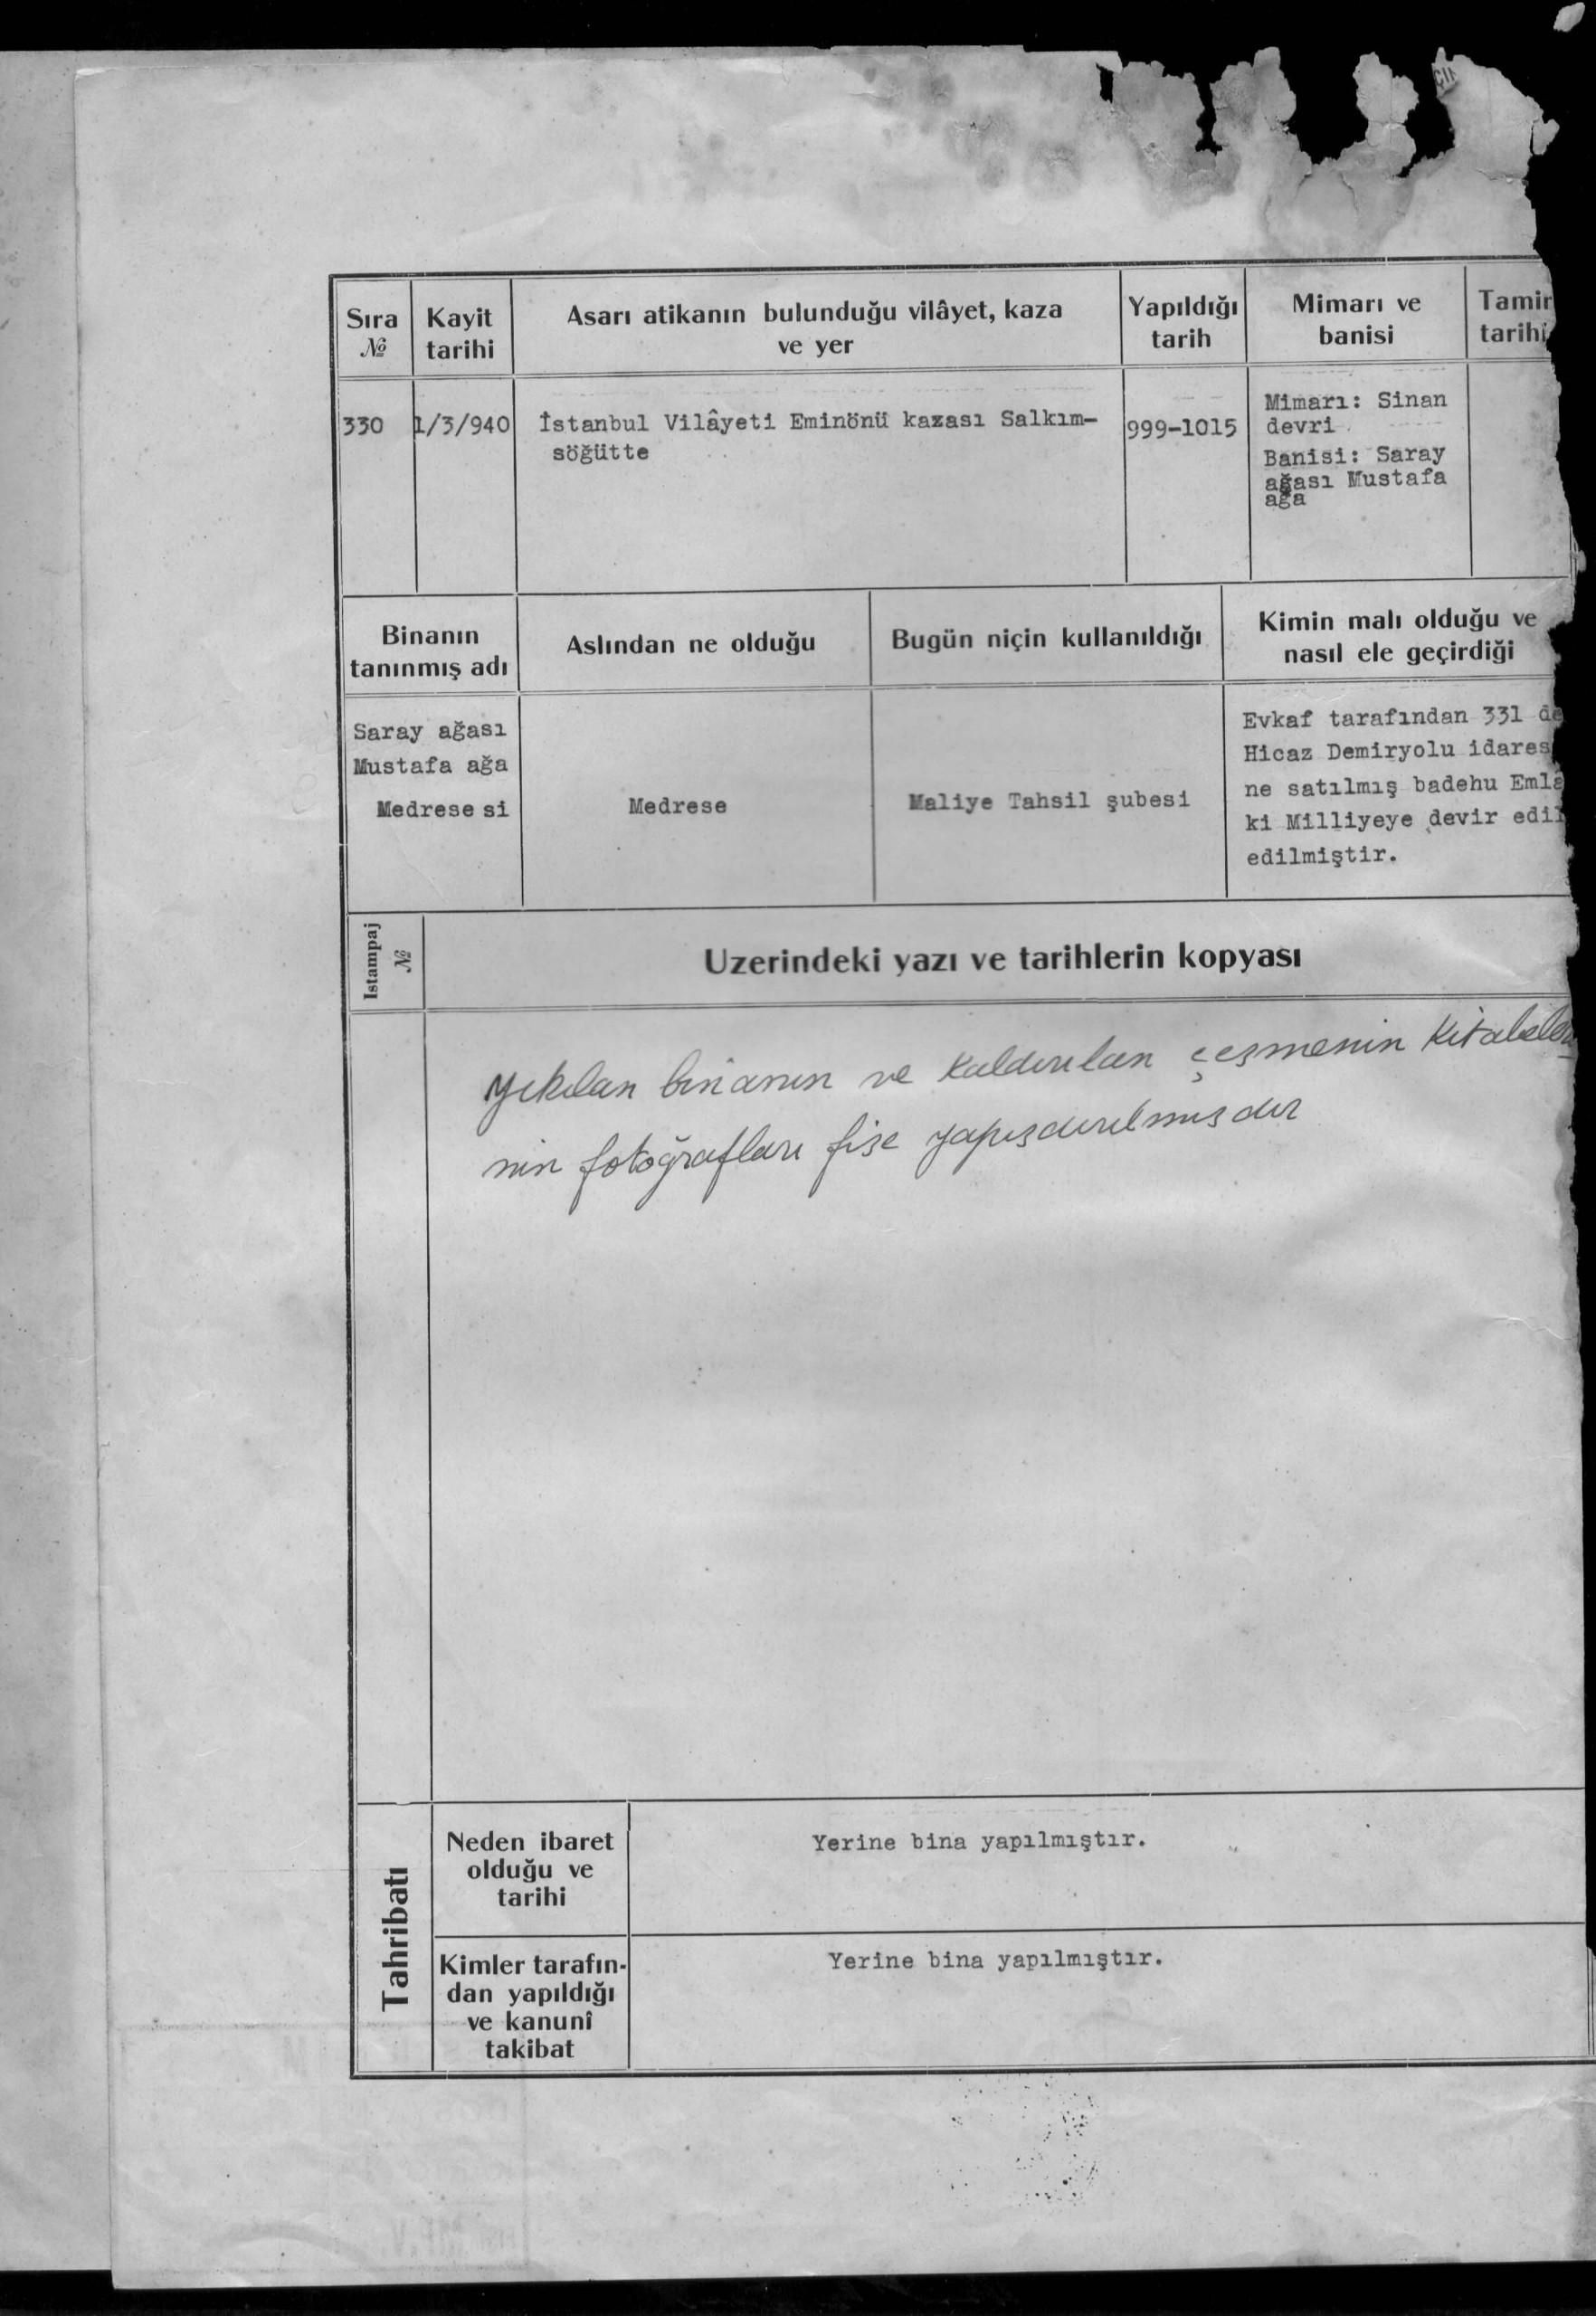 Sıra
№
Kayit
tarihi
Asarı atikanın bulunduğu vilâyet, kaza
ve yer
Yapıldığı
tarih
Mimarı ve
banisi
Tamir
tarihi
330
1/3/940
İstanbul Vilâyeti Eminönü kazası Salkım-
söğütte
999-1015
Mimarı: Sinan
devri
Banisi: Saray
ağası Mustafa
ağa
Binanın
tanınmış adı
Aslından ne olduğu
Bugün niçin kullanıldığı
Kimin malı olduğu ve
nasıl ele geçirdiği
Saray ağası
Mustafa ağa
Medrese si
Medrese
Maliye Tahsil şubesi
Evkaf tarafından 331 de
Hicaz Demiryolu idares
ne satılmış badehu Emlâ
ki Milliyeye devir edil
edilmiştir.
Istampaj
№
Uzerindeki yazı ve tarihlerin kopyası
Yıkılan binanın ve kaldırılan çeşmenin kitabeleri
nin fotoğrafları fişe yapışdırılmışdır
Tahribatı
Neden ibaret
olduğu ve
tarihi
Yerine bina yapılmıştır.
Kimler tarafın-
dan yapıldığı
ve kanunî
takibat
Yerine bina yapılmıştır.